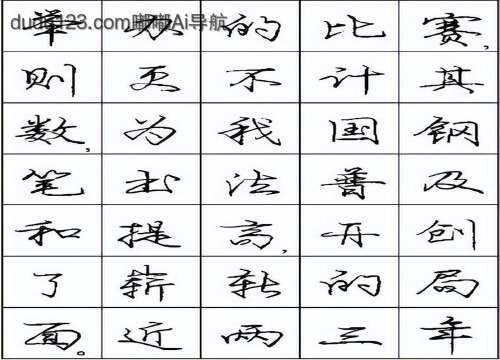 dudu123.com嘟嘟Ai导航
的比赛,
则更不计其
数,为我国钢
笔书法普及
和提高,开创
了崭新的局
面。近两三年